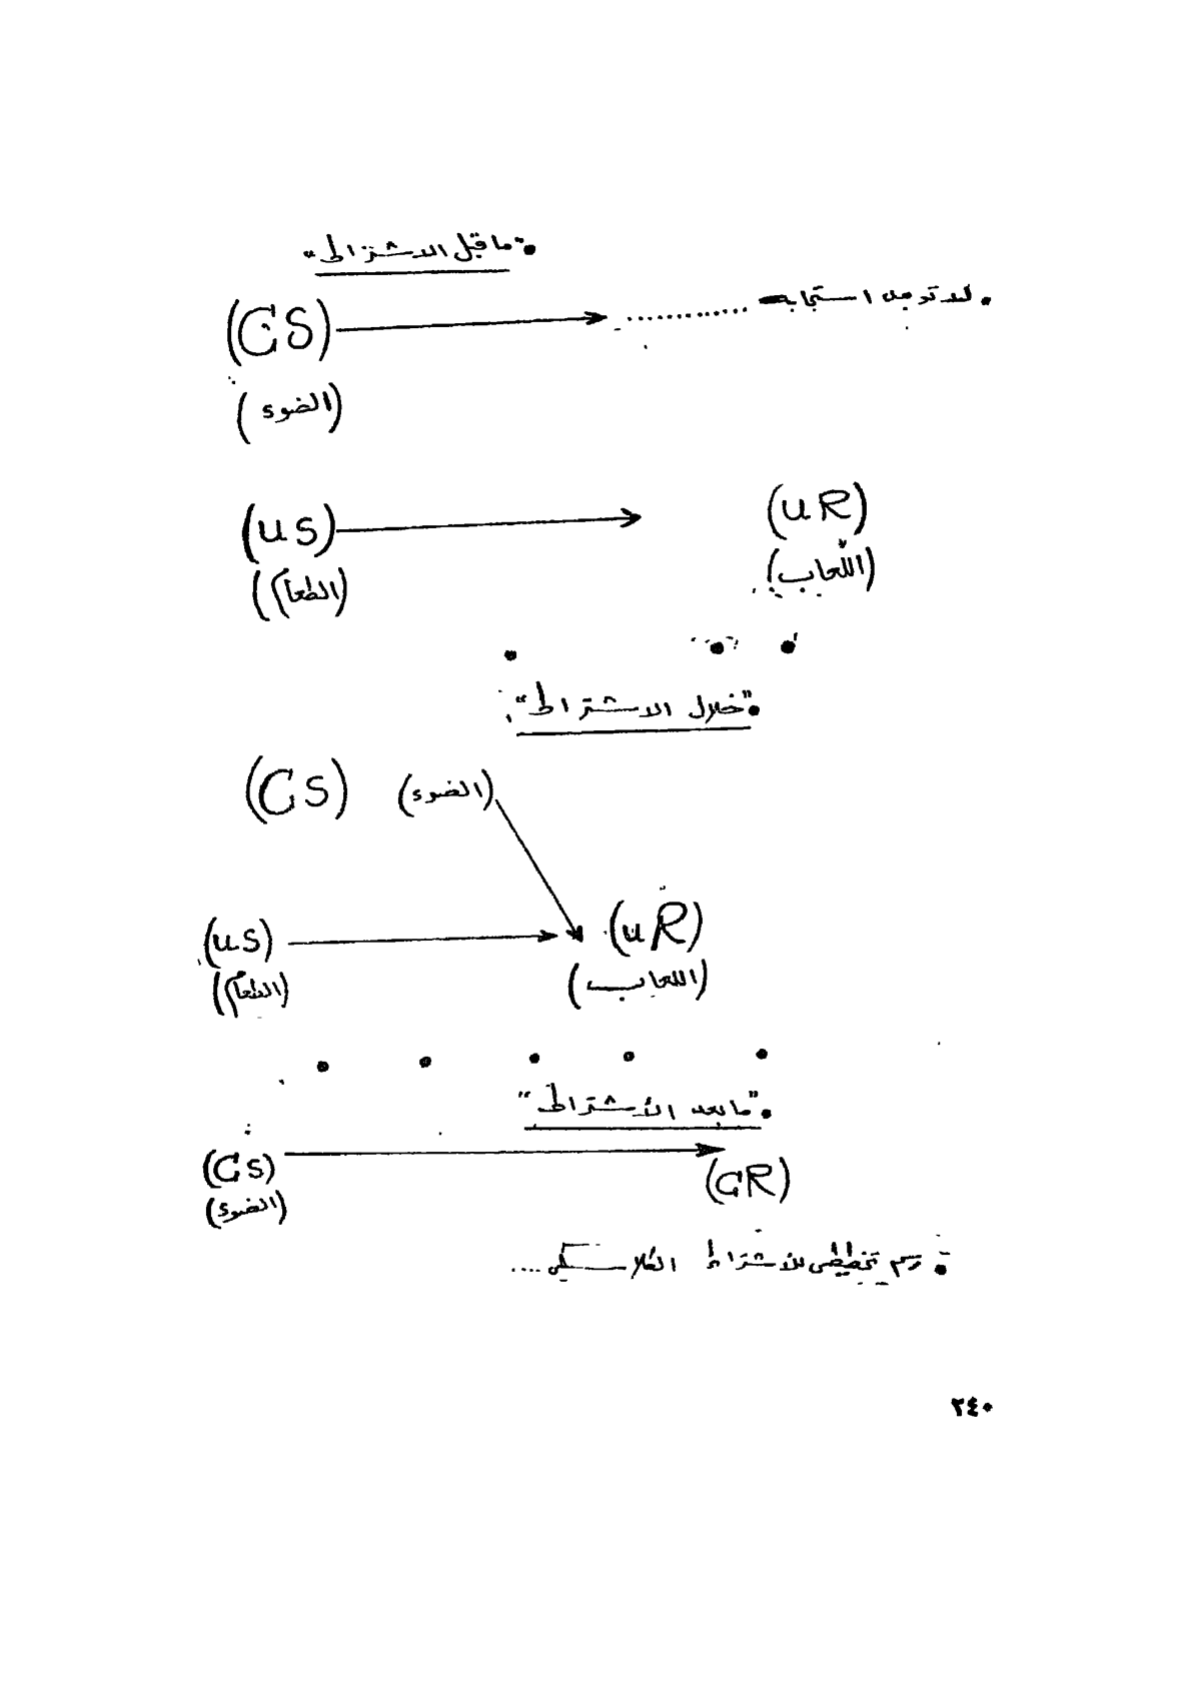 "ما قبل الاشتراط"
(CS) ............ لا توجد استجابه
(الضوء)
(US) (UR)
(الطعام) (اللعاب)
"خلال الاشتراط"
(CS) (الضوء)
(US) (UR)
(الطعام) (اللعاب)
"ما بعد الأشتراط"
(CS) (CR)
(الضوء)
رسم تخطيطي للأشتراط الكلاسيكي ....
٢٤٠